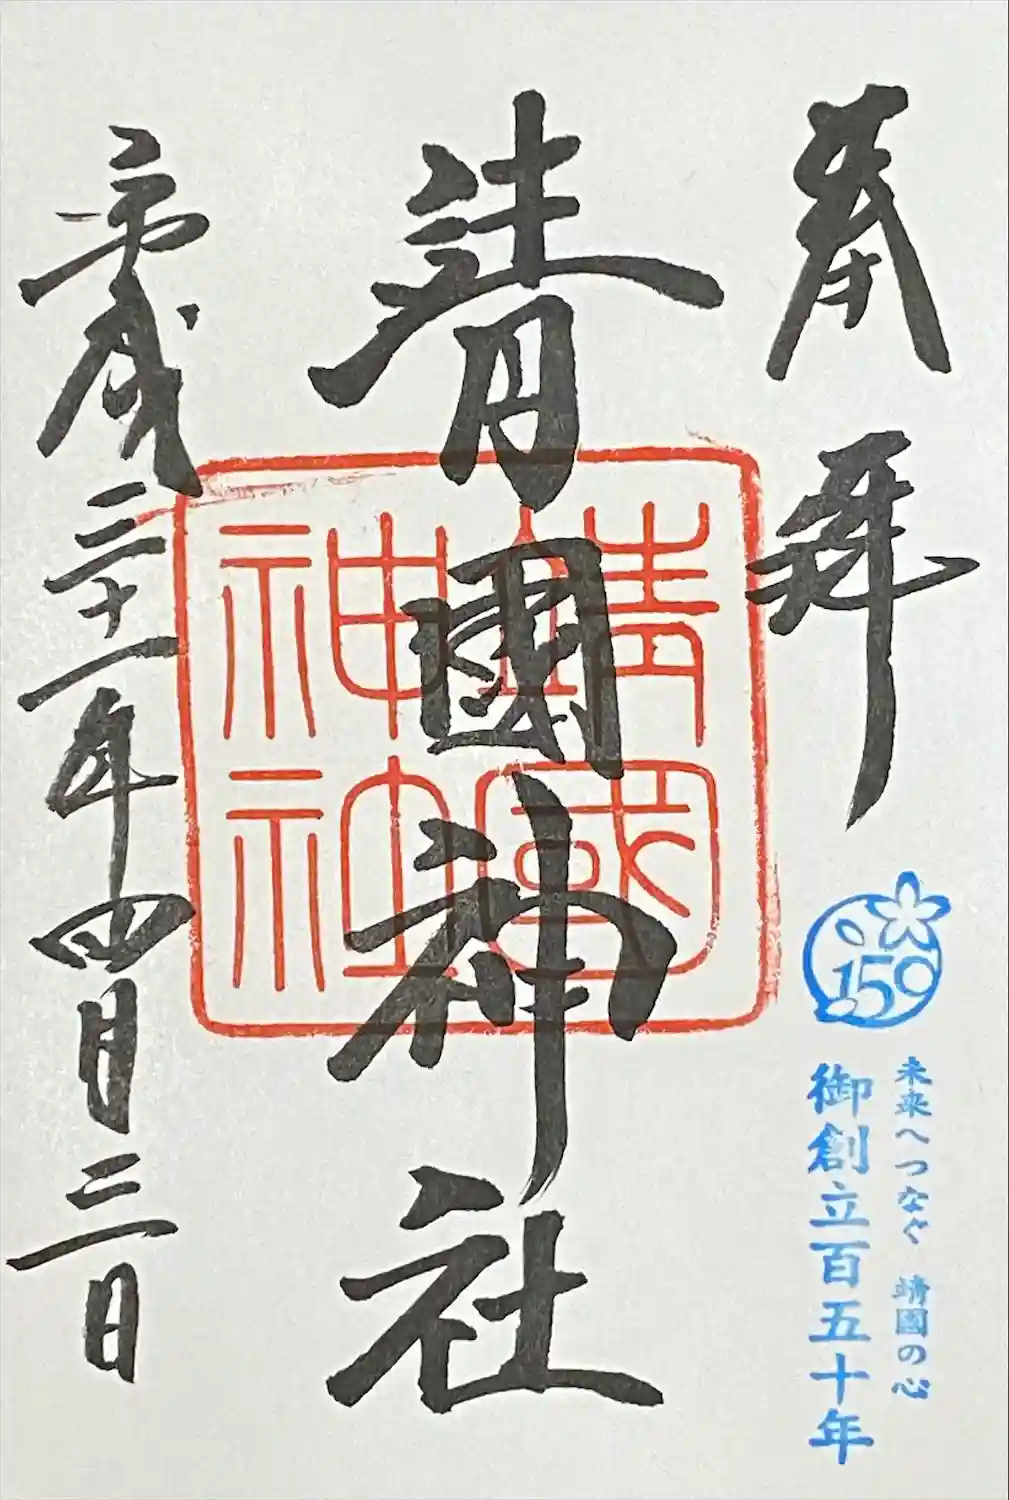 奉拝
150
未来へつなぐ 靖國の心
御創立百五十年
靖國神社
靖國
神社
平成三十一年四月三日